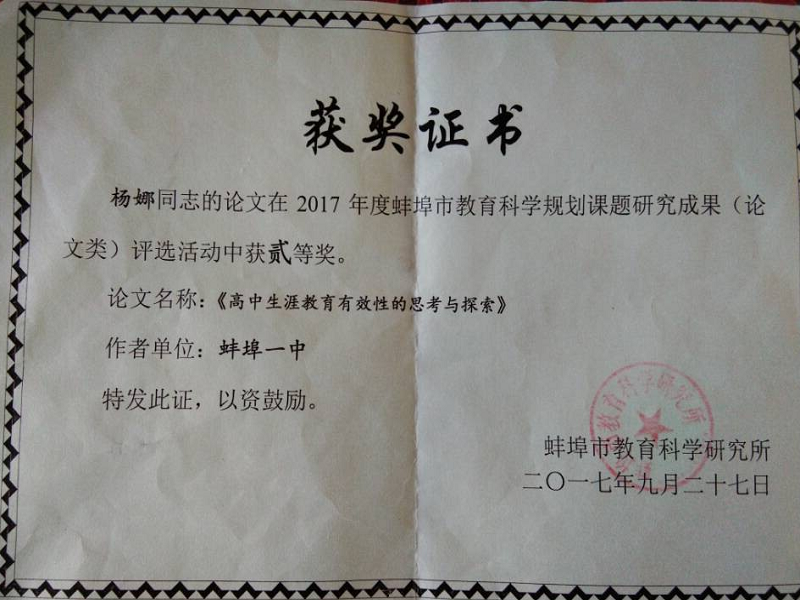 获奖证书
杨娜同志的论文在 2017 年度蚌埠市教育科学规划课题研究成果（论
文类）评选活动中获贰等奖。
论文名称：《高中生涯教育有效性的思考与探索》
作者单位：蚌埠一中
特发此证，以资鼓励。
教育科学研究所
蚌埠市教育科学研究所
二〇一七年九月二十七日